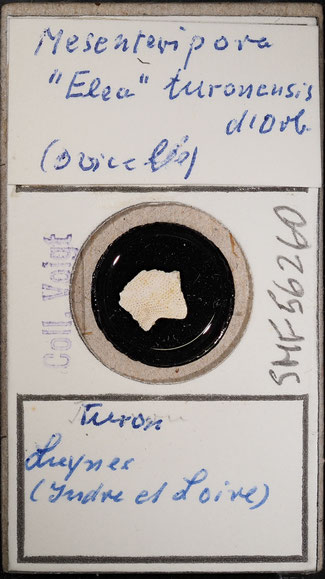 Mesenteripora
"Elea" turonensis
d'Orb.
(Ovicelle)
Coll. Voigt
SMF 56260
Turon
Luynes
(Indre et Loire)